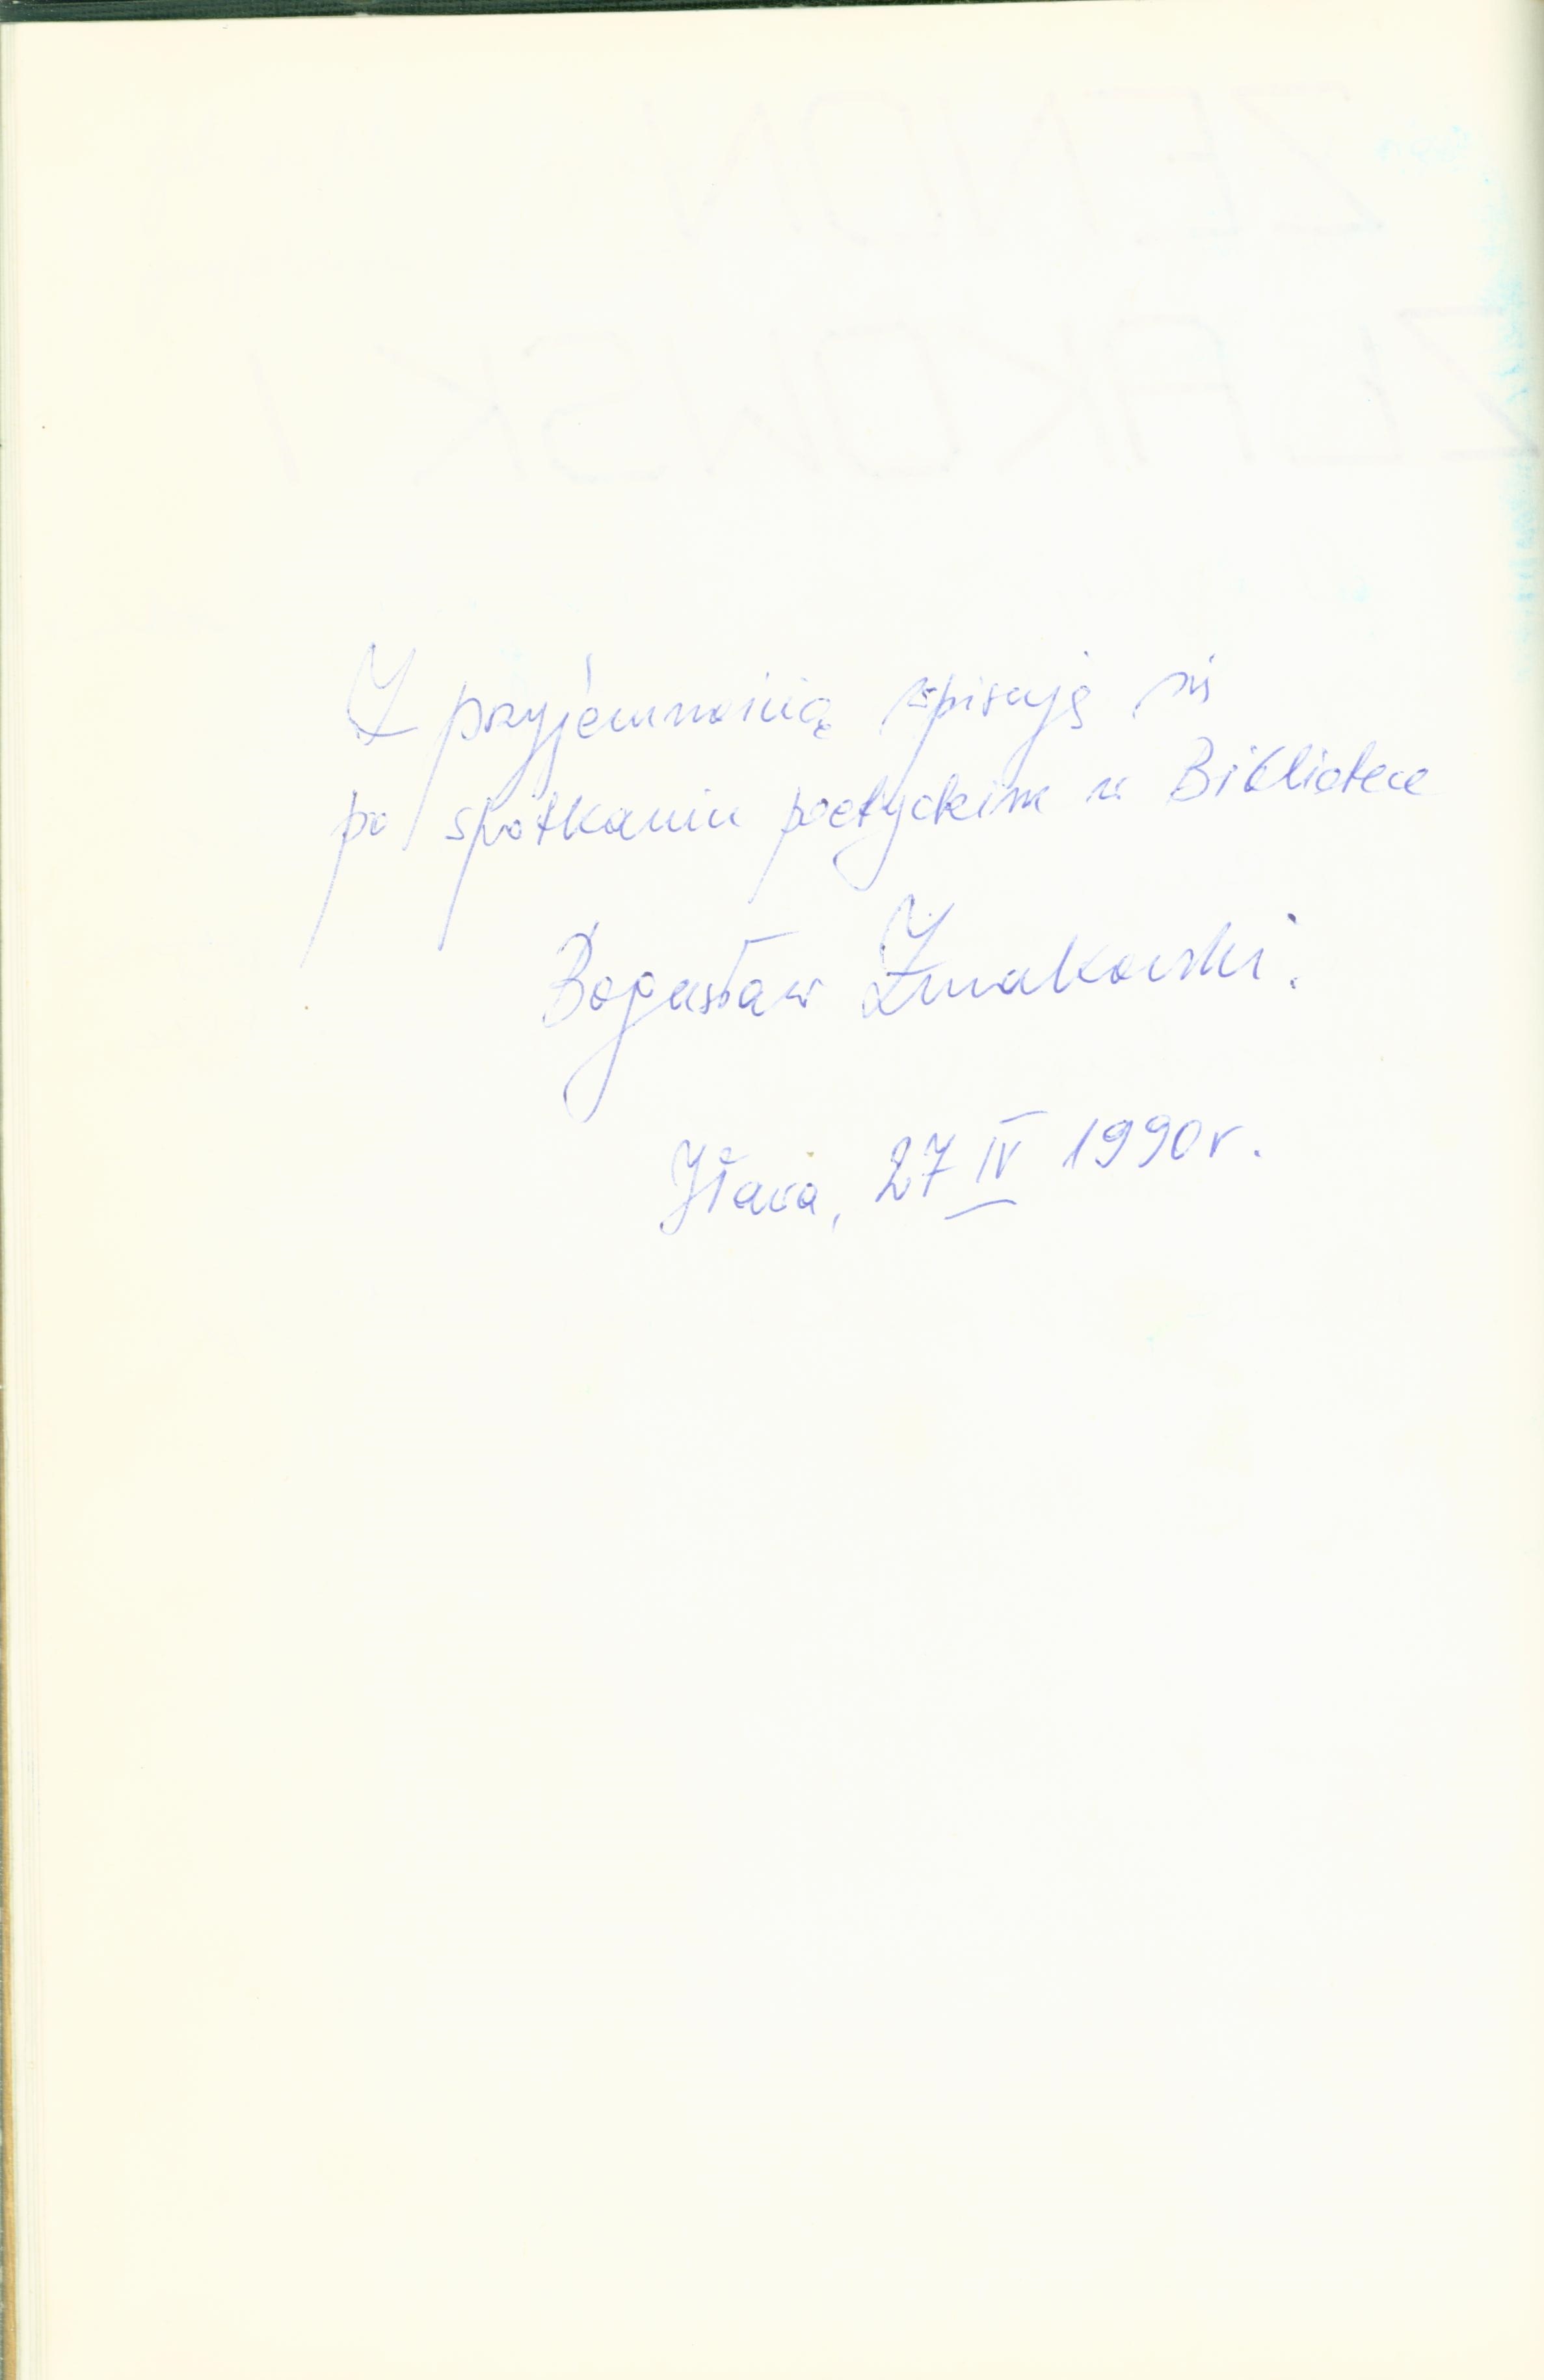 Z przyjemnością wpisuję się
po spotkaniu poetyckim w Bibliotece
Bogusław Żmakowski.
Iława, 27 IV 1990r.